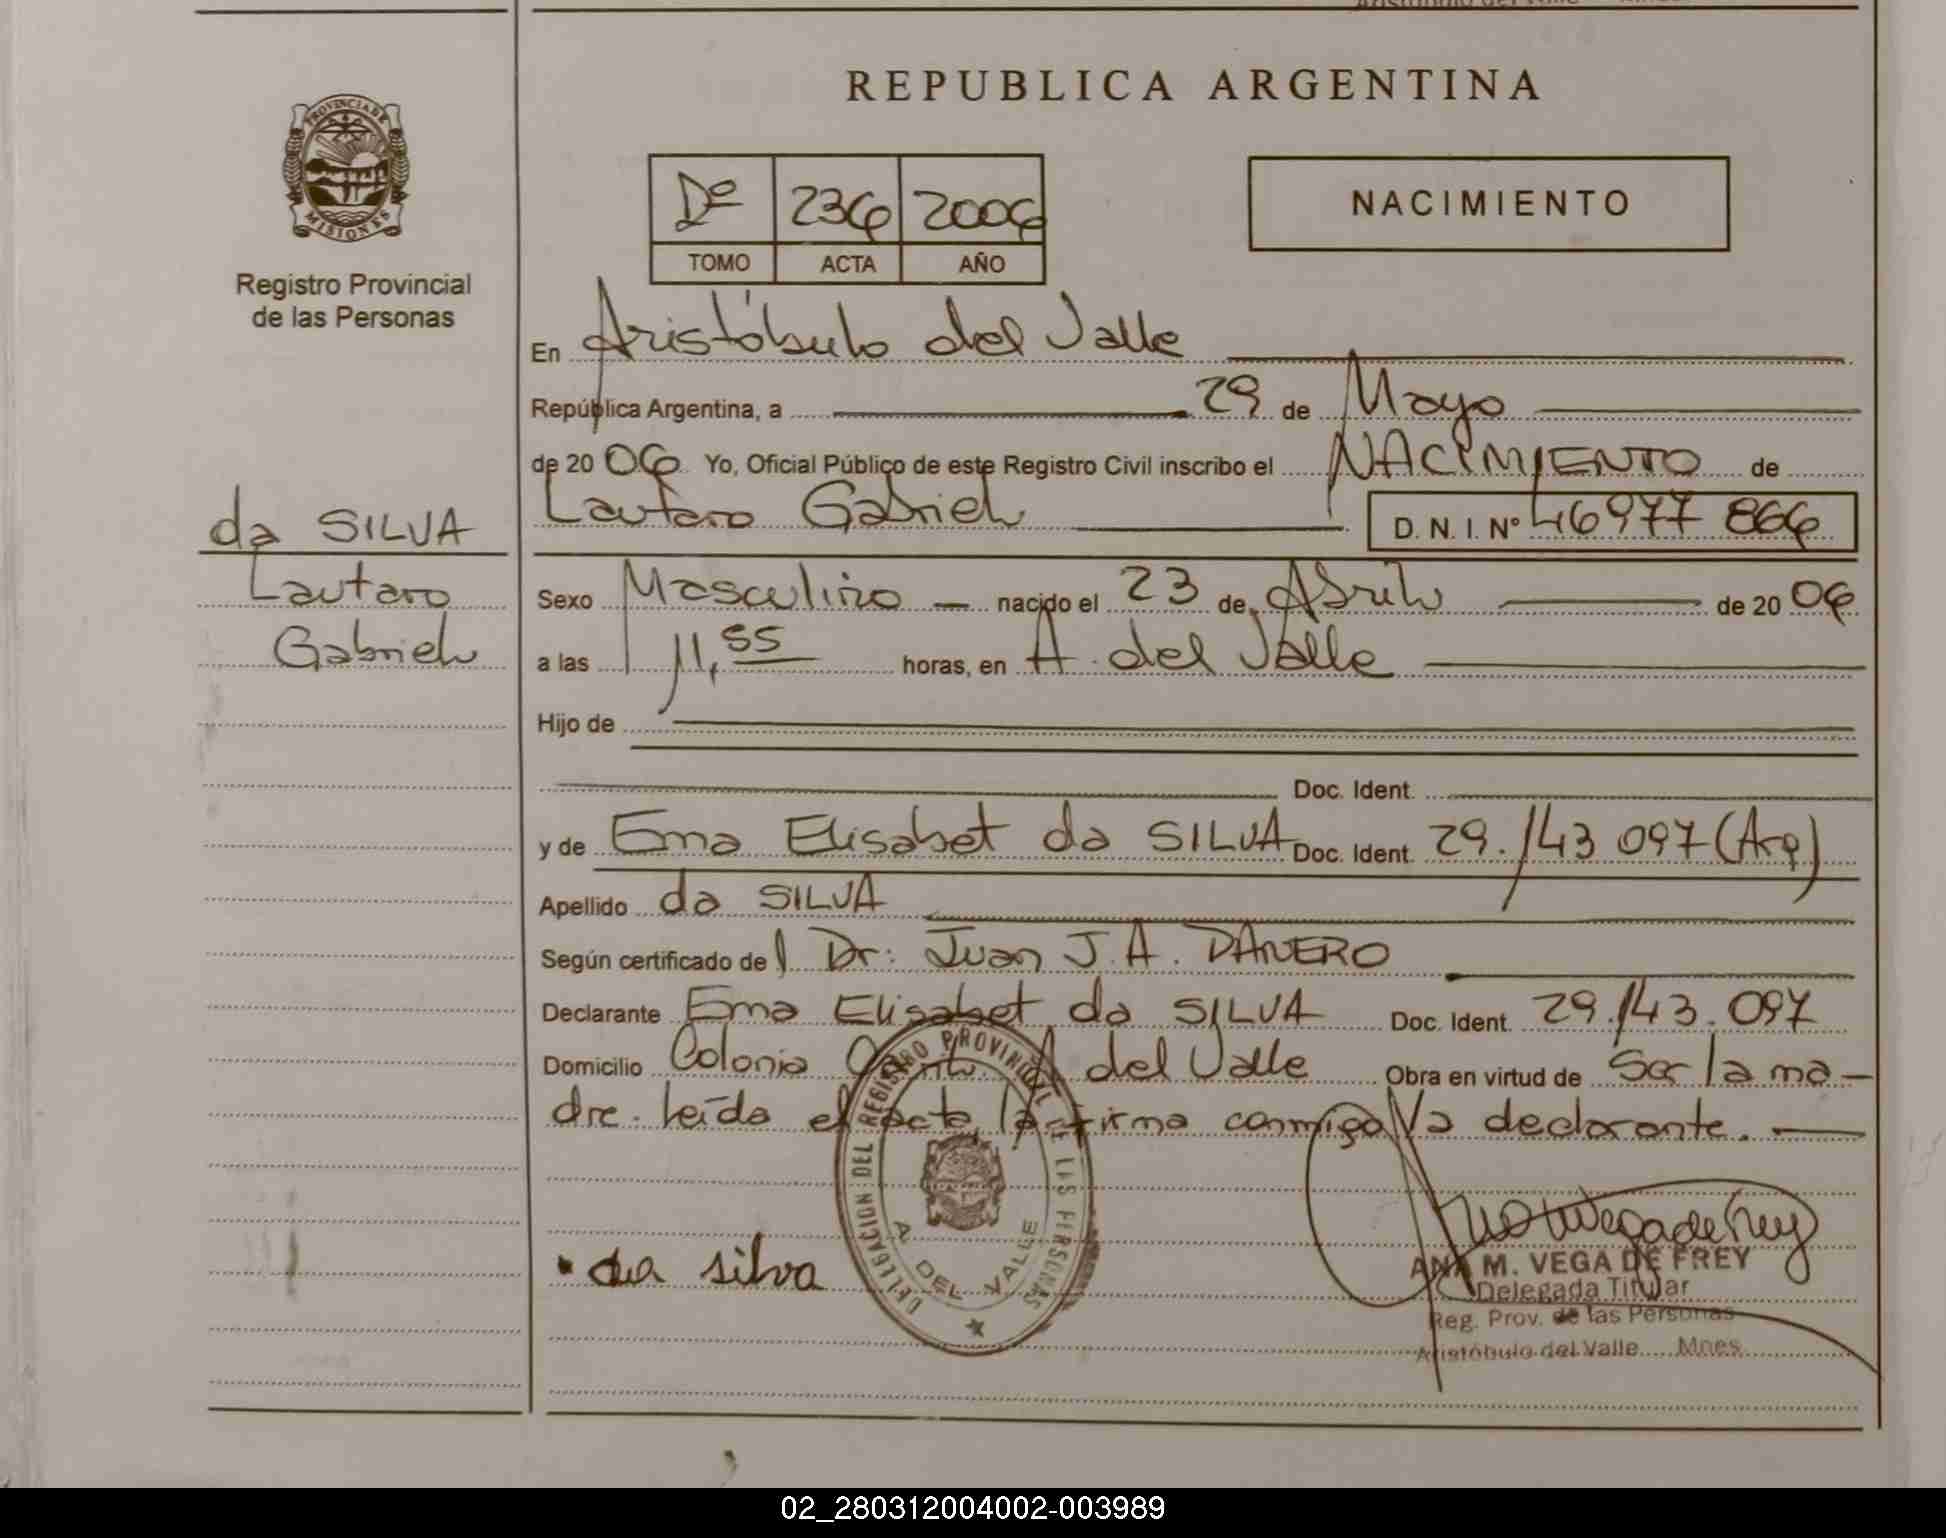 REPUBLICA ARGENTINA
PROVINCIA DE MISIONES
Registro Provincial
de las Personas
Dº 236 2006
TOMO ACTA AÑO
NACIMIENTO
En Aristóbulo del Valle
República Argentina, a 29 de Mayo
de 20 06 Yo, Oficial Público de este Registro Civil inscribo el NACIMIENTO de
Lautaro Gabriel D. N. I. Nº 46977 866
da SILVA
Lautaro
Gabriel
Sexo Masculino nacido el 23 de Abril de 20 06
a las 11,55 horas, en A. del Valle
Hijo de
Doc. Ident.
y de Ema Elisabet da SILVA Doc. Ident. 29.143 097 (Arg)
Apellido da SILVA
Según certificado del Dr: Juan J. A. DANERO
Declarante Ema Elisabet da SILVA Doc. Ident. 29.143.097
Domicilio Colonia A del Valle Obra en virtud de Ser la ma-
dre. Leída el acta, la firma conmigo la declarante.
DELEGACION DEL REGISTRO PROVINCIAL DE LAS PERSONAS
A. DEL VALLE
da silva
ANA M. VEGA DE FREY
Delegada Titular
Reg. Prov. de las Personas
Aristóbulo del Valle Mnes.
02_280312004002-003989